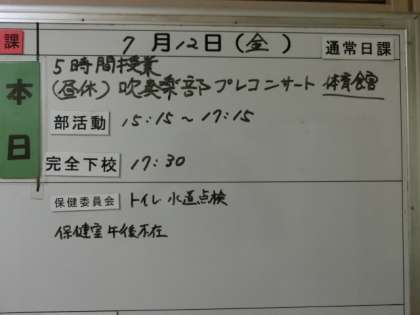 課
7月12日(金)
通常日課
本日
5時間授業
(昼休)吹奏楽部プレコンサート 体育館
部活動 15:15~17:15
完全下校 17:30
保健委員会 トイレ 水道点検
保健室 午後不在